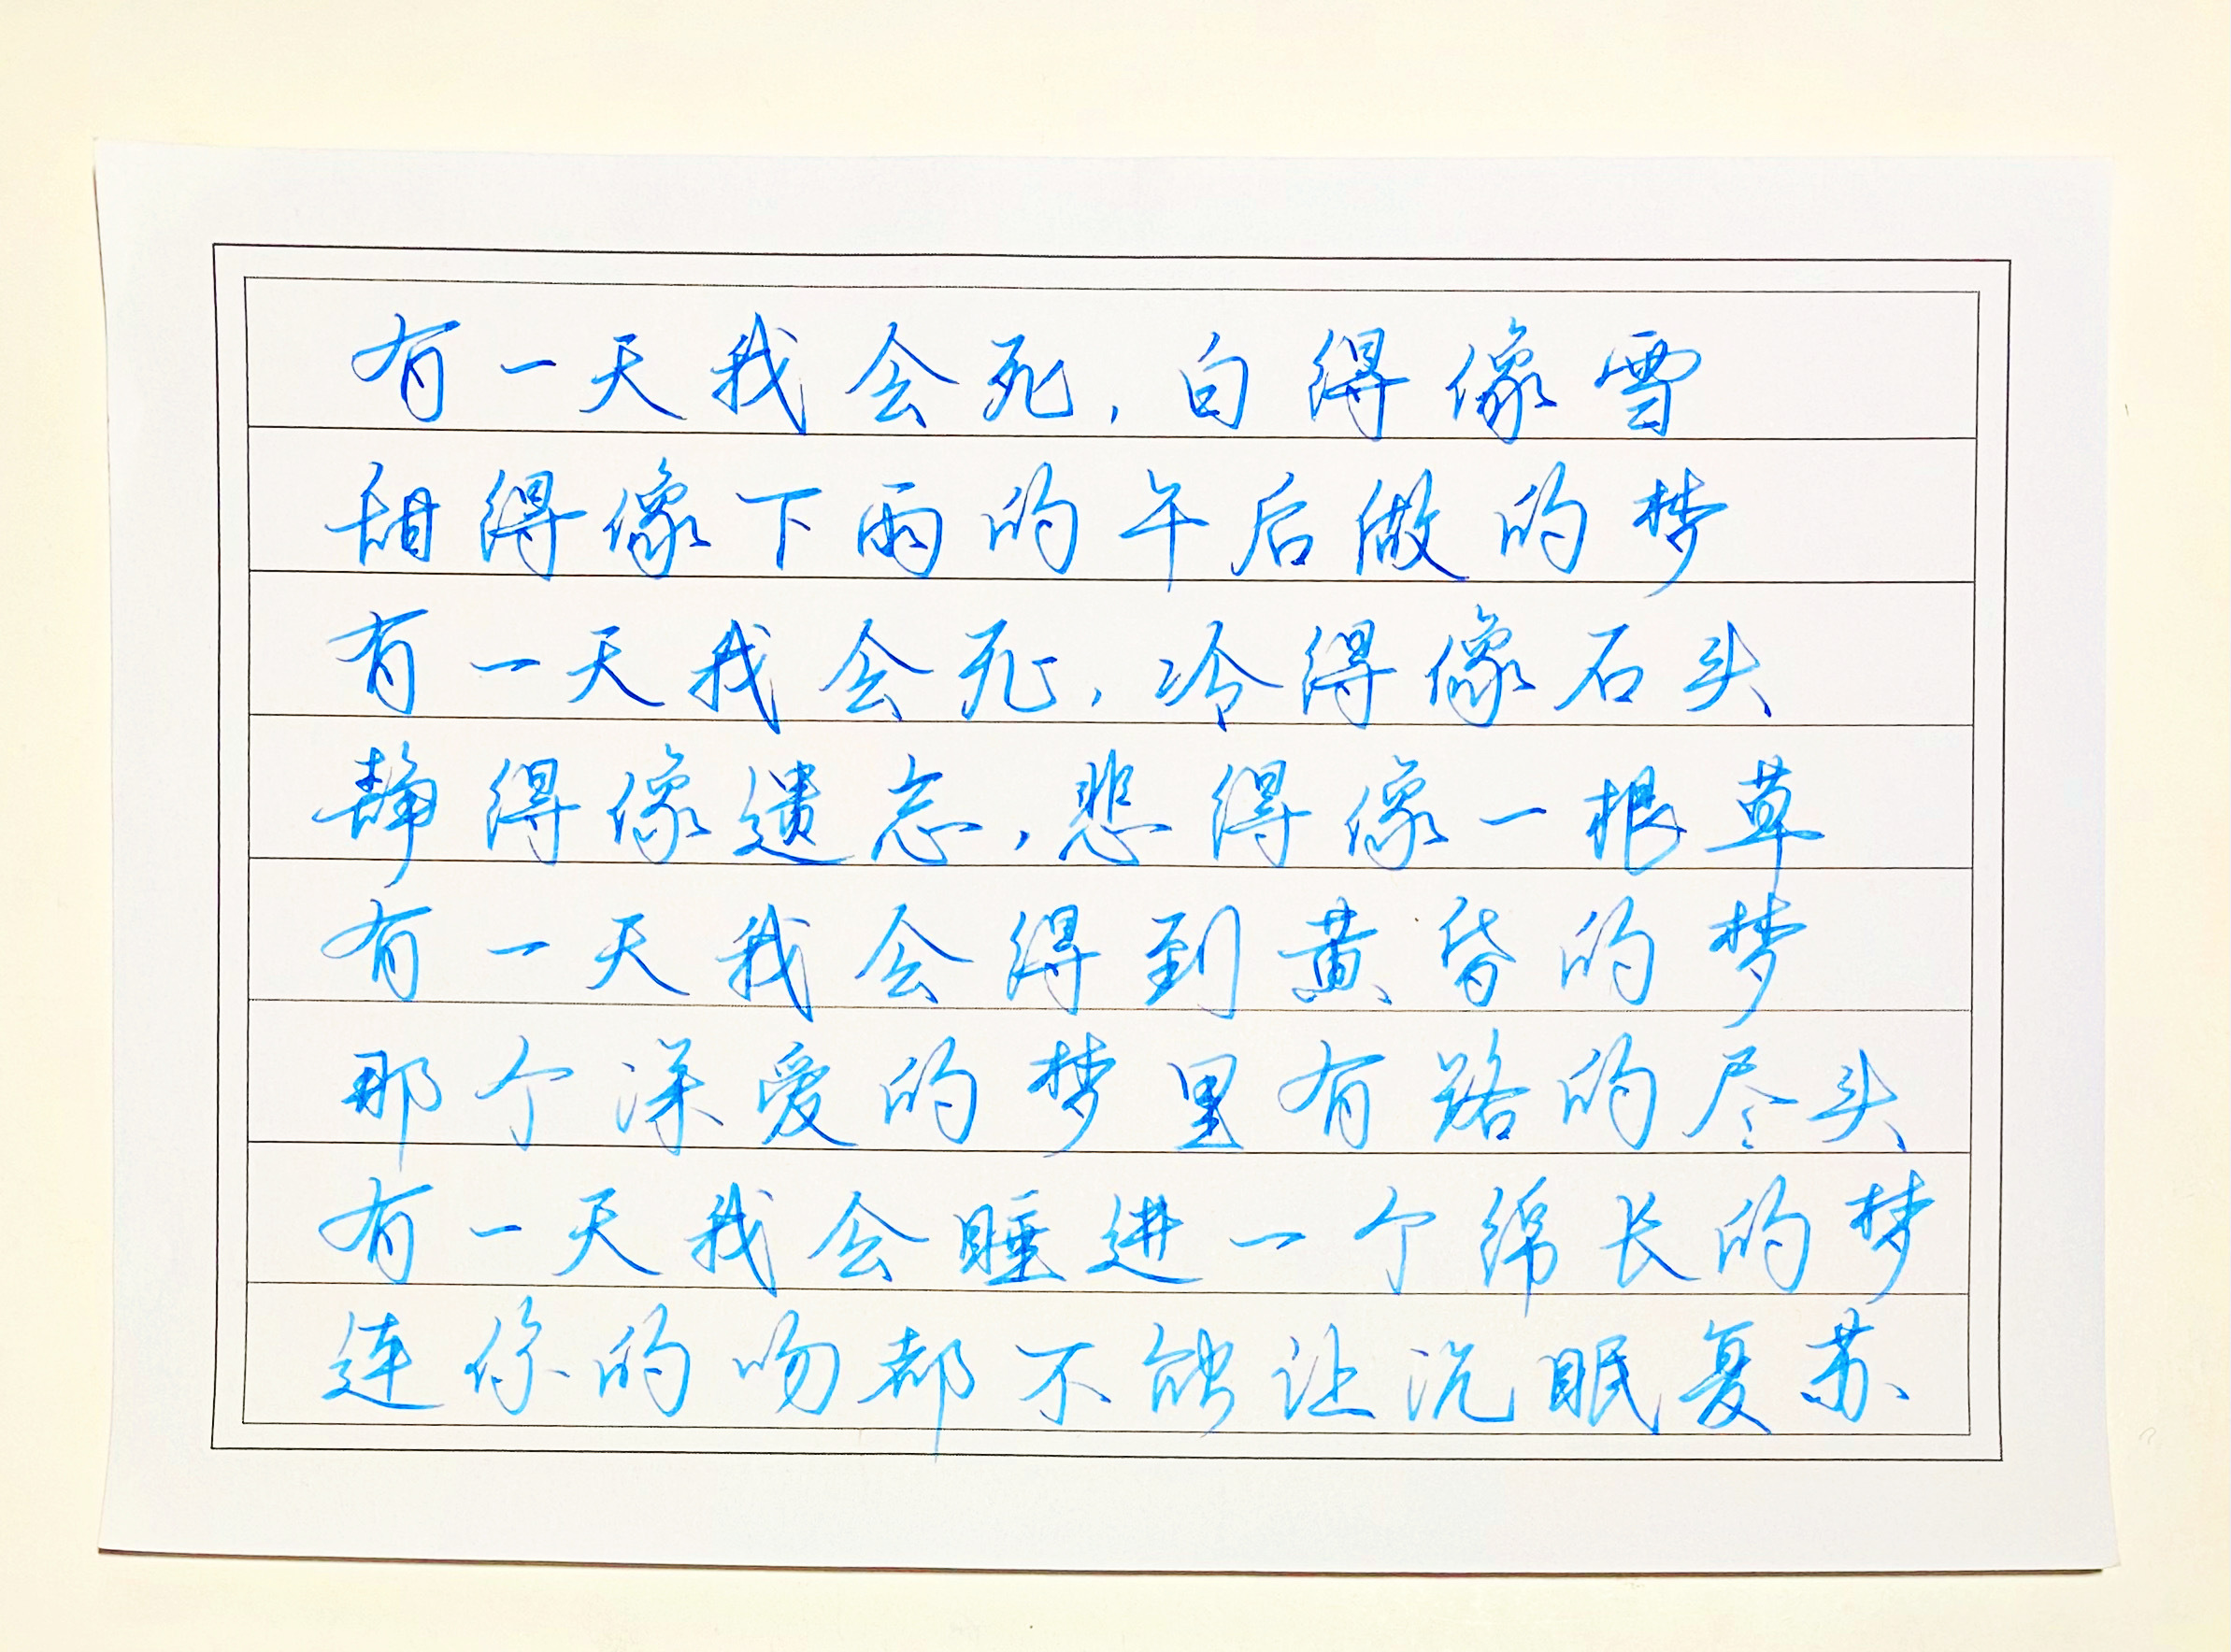 有一天我会死,白得像雪
甜得像下雨的午后做的梦
有一天我会死,冷得像石头
静得像遗忘,悲得像一根草
有一天我会得到黄昏的梦
那个深爱的梦里有路的尽头
有一天我会睡进一个绵长的梦
连你的吻都不能让沉眠复苏